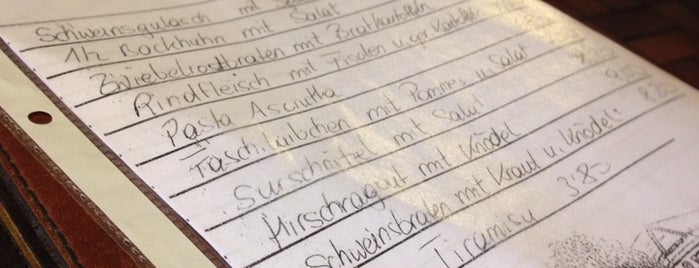 Schweinsgulasch mit
1/2 Backhuhn mit Salat
Zwiebelrostbraten mit Bratkartoffeln
Rindfleisch mit Fisolen u. ger. Kartoffel
Pasta Asciutta
Faschl.laibchen mit Pommes u. Salat
Surschnitzel mit Salat
Hirschragut mit Knödel
Schweinsbraten mit Kraut u. Knödel
Tiramisu 3'80